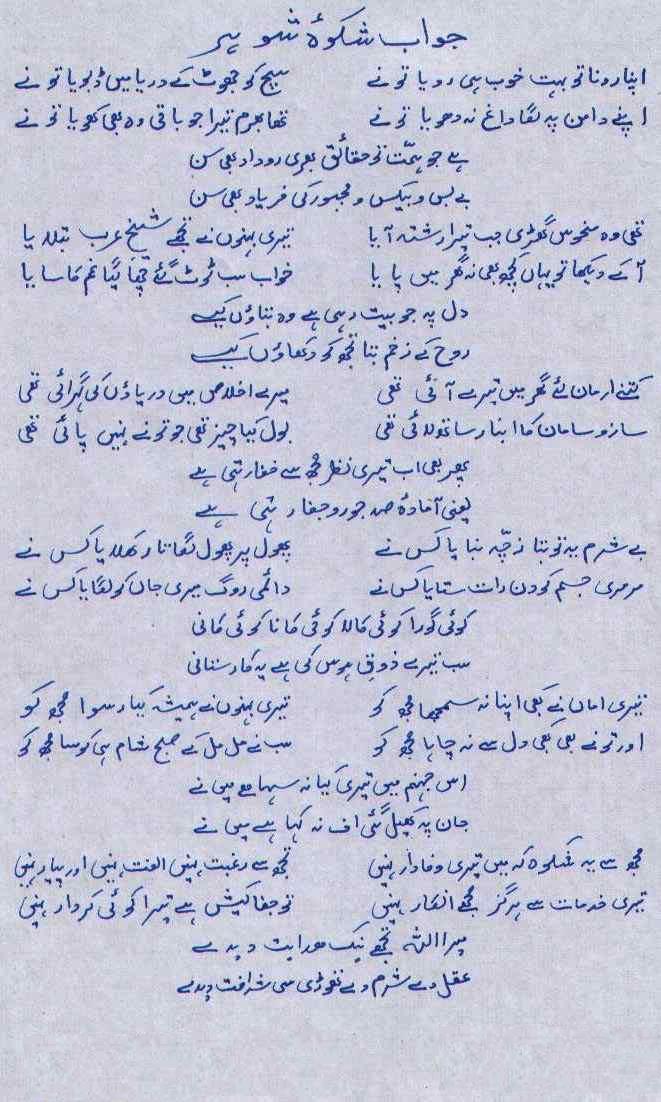 جواب شکوۂ شوہر
اپنا رونا تو بہت خوب ہی رویا تو نے سچ کو جھوٹ کے دریا میں ڈبویا تو نے
اپنے دامن پہ لگا داغ نہ دھویا تو نے تھا بھرم تیرا جو باقی وہ بھی کھویا تو نے
ہے جو ہمّت تو حقائق بھری روداد بھی سن
بے بس و بیکس و مجبور کی فریاد بھی سن
تھی وہ منحوس گھڑی جب تیرا رشتہ آیا تیری بہنوں نے تجھے شیخ عرب بتلایا
آ کے دیکھا تو یہاں کچھ بھی نہ گھر میں پایا خواب سب ٹوٹ گئے چھا گیا غم کا سایا
دل پہ جو بیت رہی ہے وہ بتاؤں کیسے
روح کے زخم بتا تجھ کو دکھاؤں کیسے
کتنے ارمان لئے گھر میں تیرے آئی تھی میرے اخلاص میں دریاؤں کی گہرائی تھی
ساز و سامان کا انبار ساتھ لائی تھی بول کیا چیز تھی جو تو نے نہیں پائی تھی
پھر بھی اب تیری نظر مجھ سے خفا رہتی ہے
یعنی آمادۂ صد جور و جفا رہتی ہے
بے شرم یہ تو بتا زچّہ بنایا کس نے پھول پر پھول لگاتار کھلایا کس نے
مرمری جسم کو دن رات ستایا کس نے دائمی روگ میری جان کو لگایا کس نے
کوئی گورا کوئی کالا کوئی کانا کوئی کانی
سب تیرے ذوق ہوس کی ہے یہ کارستانی
تیری اماں نے کبھی اپنا نہ سمجھا مجھ کو تیری بہنوں نے ہمیشہ کیا رسوا مجھ کو
اور تو نے بھی کبھی دل سے نہ چاہا مجھ کو سب نے مل مل کے صبح شام ہی کوسا مجھ کو
اس جہنم میں تیری کیا نہ سہا ہے میں نے
جان پہ کھیل گئی اف نہ کہا ہے میں نے
مجھ سے یہ شکوہ کہ میں تیری وفادار نہیں تجھ سے رغبت نہیں الفت نہیں اور پیار نہیں
تیری خدمات سے ہرگز مجھے انکار نہیں تو جفا کیش ہے تیرا کوئی کردار نہیں
میرا اللہ تجھے نیک ہدایت دیدے
عقل دے شرم دے تھوڑی سی شرافت دیدے